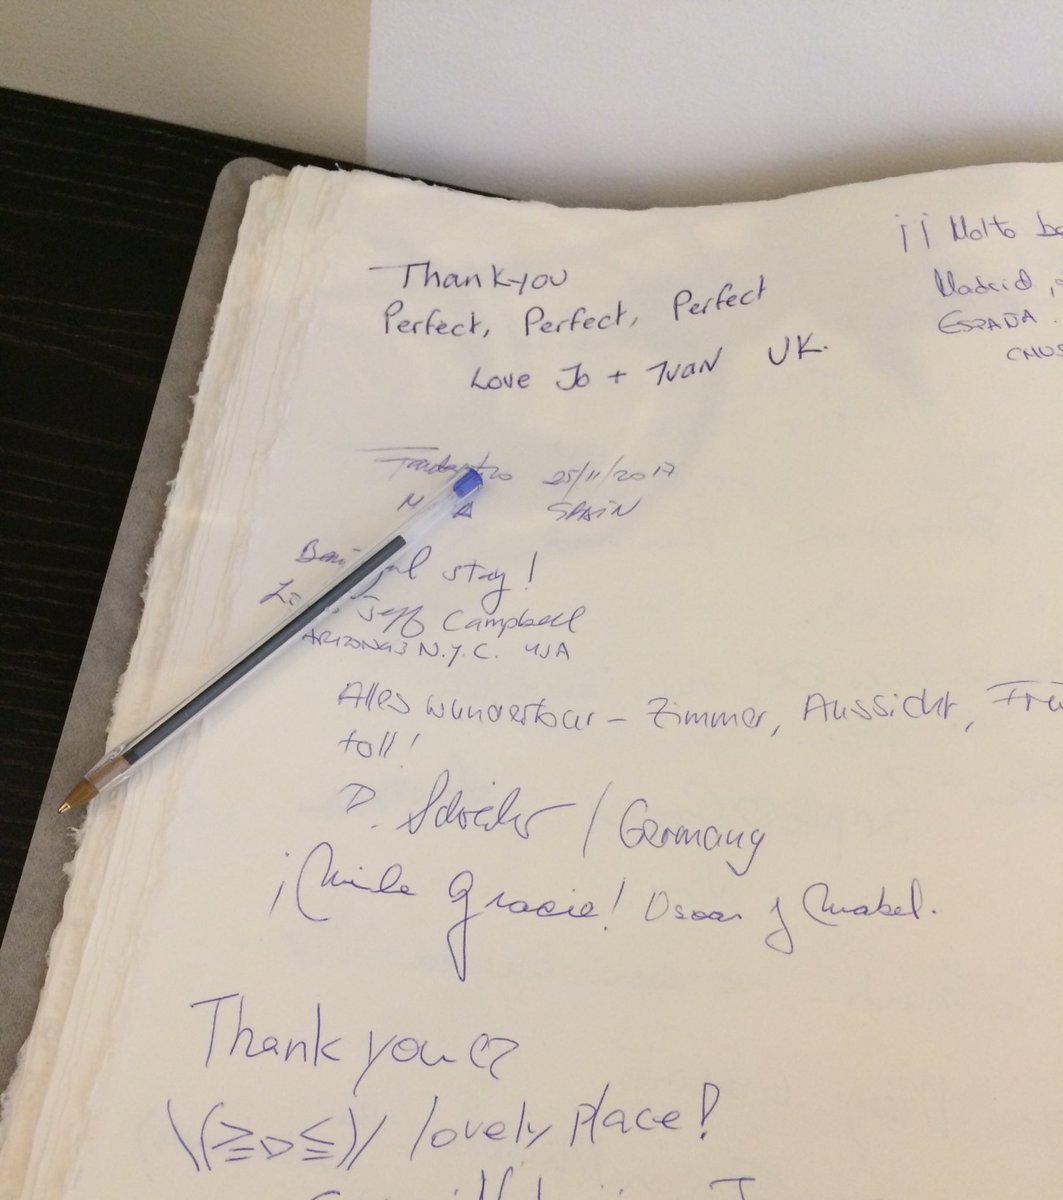 Thankyou
Perfect, Perfect, Perfect
Love Jo + Ivan UK.
¡¡ Molto
Madrid,
ESPAÑA.
25/11/2017
SPAIN
stay!
Jeff Campbell
ARIZONA N.Y.C. USA
Alles wunderbar - Zimmer, Aussicht,
toll!
D. / Germany
¡Mile gracie! Oscar y Mabel.
Thank you
\(≧▽≦)/ lovely place!